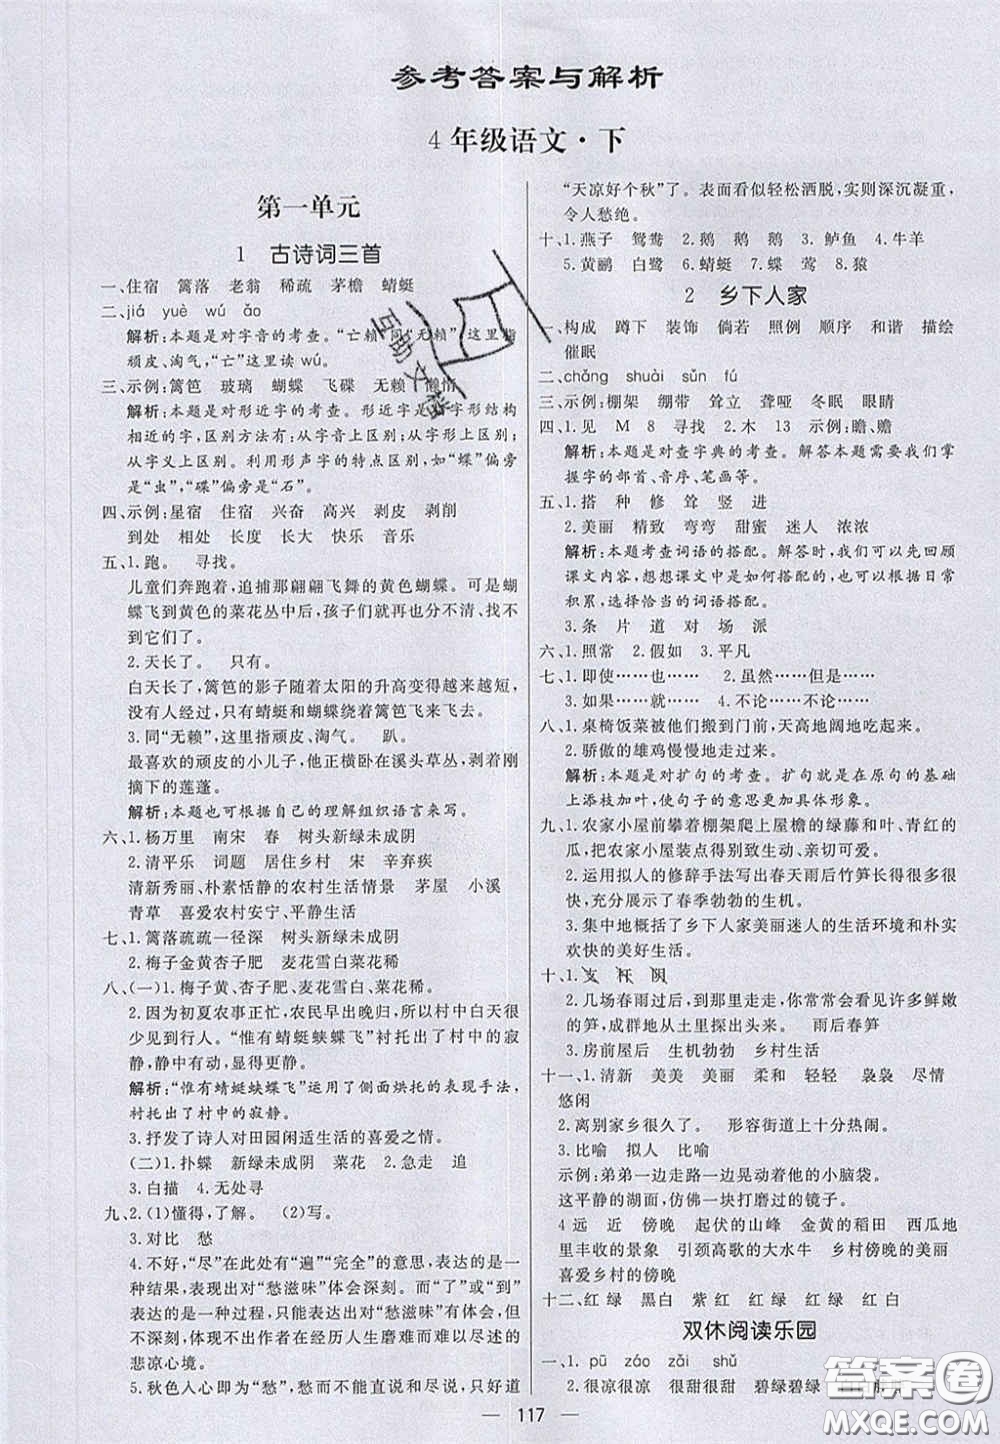 参考答案与解析
4年级语文·下
第一单元
1 古诗词三首
一、住宿 篱落 老翁 稀疏 茅檐 蜻蜓
二、jiá yuè wú ǎo
解析:本题是对字音的考查。“亡赖”同“无赖”这里指
顽皮、淘气,“亡”这里读 wú。
三、示例:篱笆 玻璃 蝴蝶 飞碟 无赖 懒惰
解析:本题是对形近字的考查。形近字是指字形结构
相近的字,区别方法有:从字音上区别;从字形上区别;
从字义上区别。利用形声字的特点区别,如“蝶”偏旁
是“虫”,“碟”偏旁是“石”。
四、示例:星宿 住宿 兴奋 高兴 剥皮 剥削
到处 相处 长度 长大 快乐 音乐
五、1.跑。 寻找。
儿童们奔跑着,追捕那翩翩飞舞的黄色蝴蝶。可是蝴
蝶飞到黄色的菜花丛中后,孩子们就再也分不清、找不
到它们了。
2.天长了。 只有。
白天长了,篱笆的影子随着太阳的升高变得越来越短,
没有人经过,只有蜻蜓和蝴蝶绕着篱笆飞来飞去。
3.同“无赖”,这里指顽皮、淘气。 趴。
最喜欢的顽皮的小儿子,他正横卧在溪头草丛,剥着刚
摘下的莲蓬。
解析:本题也可根据自己的理解组织语言来写。
六、1.杨万里 南宋 春 树头新绿未成阴
2.清平乐 词题 居住乡村 宋 辛弃疾
清新秀丽、朴素恬静的农村生活情景 茅屋 小溪
青草 喜爱农村安宁、平静生活
七、1.篱落疏疏一径深 树头新绿未成阴
2.梅子金黄杏子肥 麦花雪白菜花稀
八、(一)1.梅子黄、杏子肥、麦花雪白、菜花稀。
2.因为初夏农事正忙,农民早出晚归,所以村中白天很
少见到行人。“惟有蜻蜓蛱蝶飞”衬托出了村中的寂
静,静中有动,显得更静。
解析:“惟有蜻蜓蛱蝶飞”运用了侧面烘托的表现手法,
衬托出了村中的寂静。
3.抒发了诗人对田园闲适生活的喜爱之情。
(二)1.扑蝶 新绿未成阴 菜花 2.急走 追
3.白描 4.无处寻
九、2.(1)懂得,了解。 (2)写。
3.对比 愁
4.不好,“尽”在此处有“遍”“完全”的意思,表达的是一
种程度,表现出对“愁滋味”体会深刻。而“了”或“到”
表达的是一种过程,只能表达出对“愁滋味”的体会,但
不深刻,体现不出作者在经历人生磨难而难以表述的
悲凉心境。
5.秋色人心即为“愁”,愁而不能直说和尽说,只好道
“天凉好个秋”了。表面看似轻松洒脱,实则深沉凝重,
令人愁绝。
十、1.燕子 鸳鸯 2.鹅 鹅 鹅 3.鲈鱼 4.牛羊
5.黄鹂 白鹭 6.蜻蜓 7.蝶 莺 8.猿
2 乡下人家
一、构成 蹲下 装饰 倘若 照例 顺序 和谐 描绘
催眠
二、chǎng shuài sǔn fú
三、示例:棚架 绷带 耸立 聋哑 冬眠 眼睛
四、1.见 M 8 寻找 2.木 13 示例:瞻、赡
解析:本题是对查字典的考查。解答本题需要我们掌
握字的部首、音序、笔画等。
五、1.搭 种 修 耸 竖 进
2.美丽 精致 弯弯 甜蜜 迷人 浓浓
解析:本题考查词语的搭配。解答时,我们可以先回顾
课文内容,想想课文中是如何搭配的,也可以根据日常
积累,选择恰当的词语搭配。
3.条 片 道 对 场 派
六、1.照常 2.假如 3.平凡
七、1.即使……也…… 2.虽然……但是……
3.如果……就…… 4.不论……不论……
八、1.桌椅饭菜被他们搬到门前,天高地阔地吃起来。
2.骄傲的雄鸡慢慢地走过来。
解析:本题是对扩句的考查。扩句就是在原句的基础
上添枝加叶,使句子的意思更加具体形象。
九、1.农家小屋前攀着棚架爬上屋檐的绿藤和叶、青红的
瓜,把农家小屋装点得别致生动、亲切可爱。
2.运用拟人的修辞手法写出了春天雨后竹笋长得很快,
充分展示了春季勃勃的生机。
3.集中地概括了乡下人家美丽迷人的生活环境和朴实
欢快的美好生活。
十、1.
2.几场春雨过后,到那里走走,你常常会看见许多鲜嫩
的笋,成群地从土里探出头来。 雨后春笋
3.房前屋后 生机勃勃 乡村生活
十一、1.清新 美美 美丽 柔和 轻轻 袅袅 尽情
悠闲
2.离别家乡很久了。 形容街上十分热闹。
3.比喻 拟人 比喻
示例:弟弟一边走路一边晃动着他的小脑袋。
这平静的湖面,仿佛一块打磨过的镜子。
4 远 近 傍晚 起伏的山峰 金黄的稻田 西瓜地
里丰收的景象 引颈高歌的大水牛 乡村傍晚的美丽
喜爱乡村的傍晚
十二、红 绿 黑白 紫 红 红绿 红绿 红 白
双休阅读乐园
一、1.pū záo zǎi shǔ
2.很凉很凉 很甜很甜 碧绿碧绿
117
互助文档
答案圈
MXQE.COM